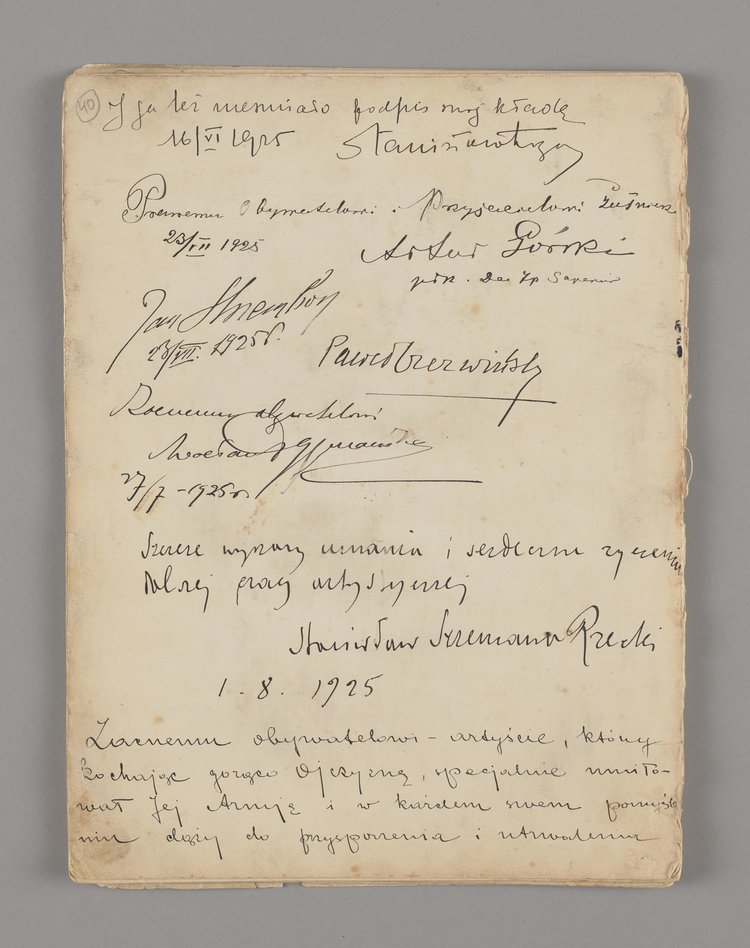 40
I ja też nieśmiało podpis mój kładę
16/VI 1925
Prawemu Obywatelowi i Przyjacielowi
23/VII 1925 Artur Górski
Jan
23/VII. 1925 r.
Paweł Czerwiński
Zacnemu obywatelowi
Wacław
27/7 - 1925 r.
Szczere wyrazy uznania i serdeczne życzenia
dalszej pracy artystycznej
Stanisław Szreniawa Rzecki
1. 8. 1925
Zacnemu obywatelowi - artyście, który
kochając gorąco Ojczyznę, specjalnie umiło-
wał Jej Armję i w każdem swem pomyśle-
niu dąży do przysporzenia i utrwalenia